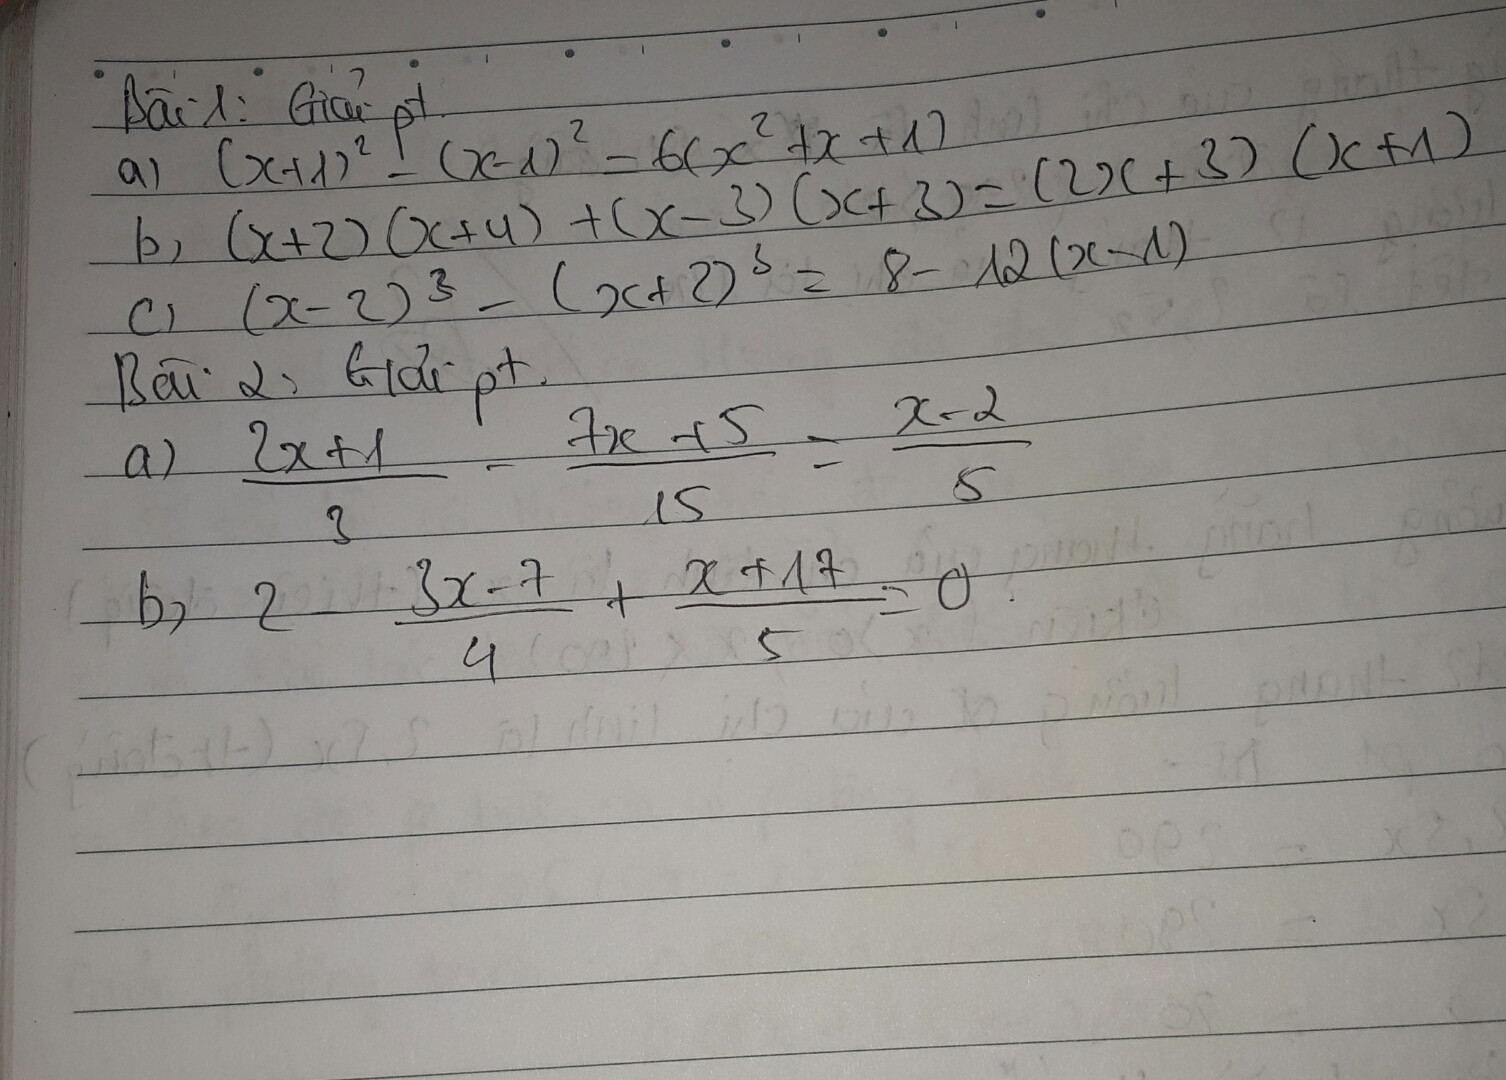 Bài 1: Giải pt.
a) (x+1)² - (x-1)² = 6(x²+x+1)
b, (x+2)(x+4) + (x-3)(x+3) = (2x+3)(x+1)
c) (x-2)³ - (x+2)³ = 8 - 12(x-1)
Bài 2, Giải pt.
a) (2x+1)/3 - (7x+5)/15 = (x-2)/5
b, 2 - (3x-7)/4 + (x+17)/5 = 0.